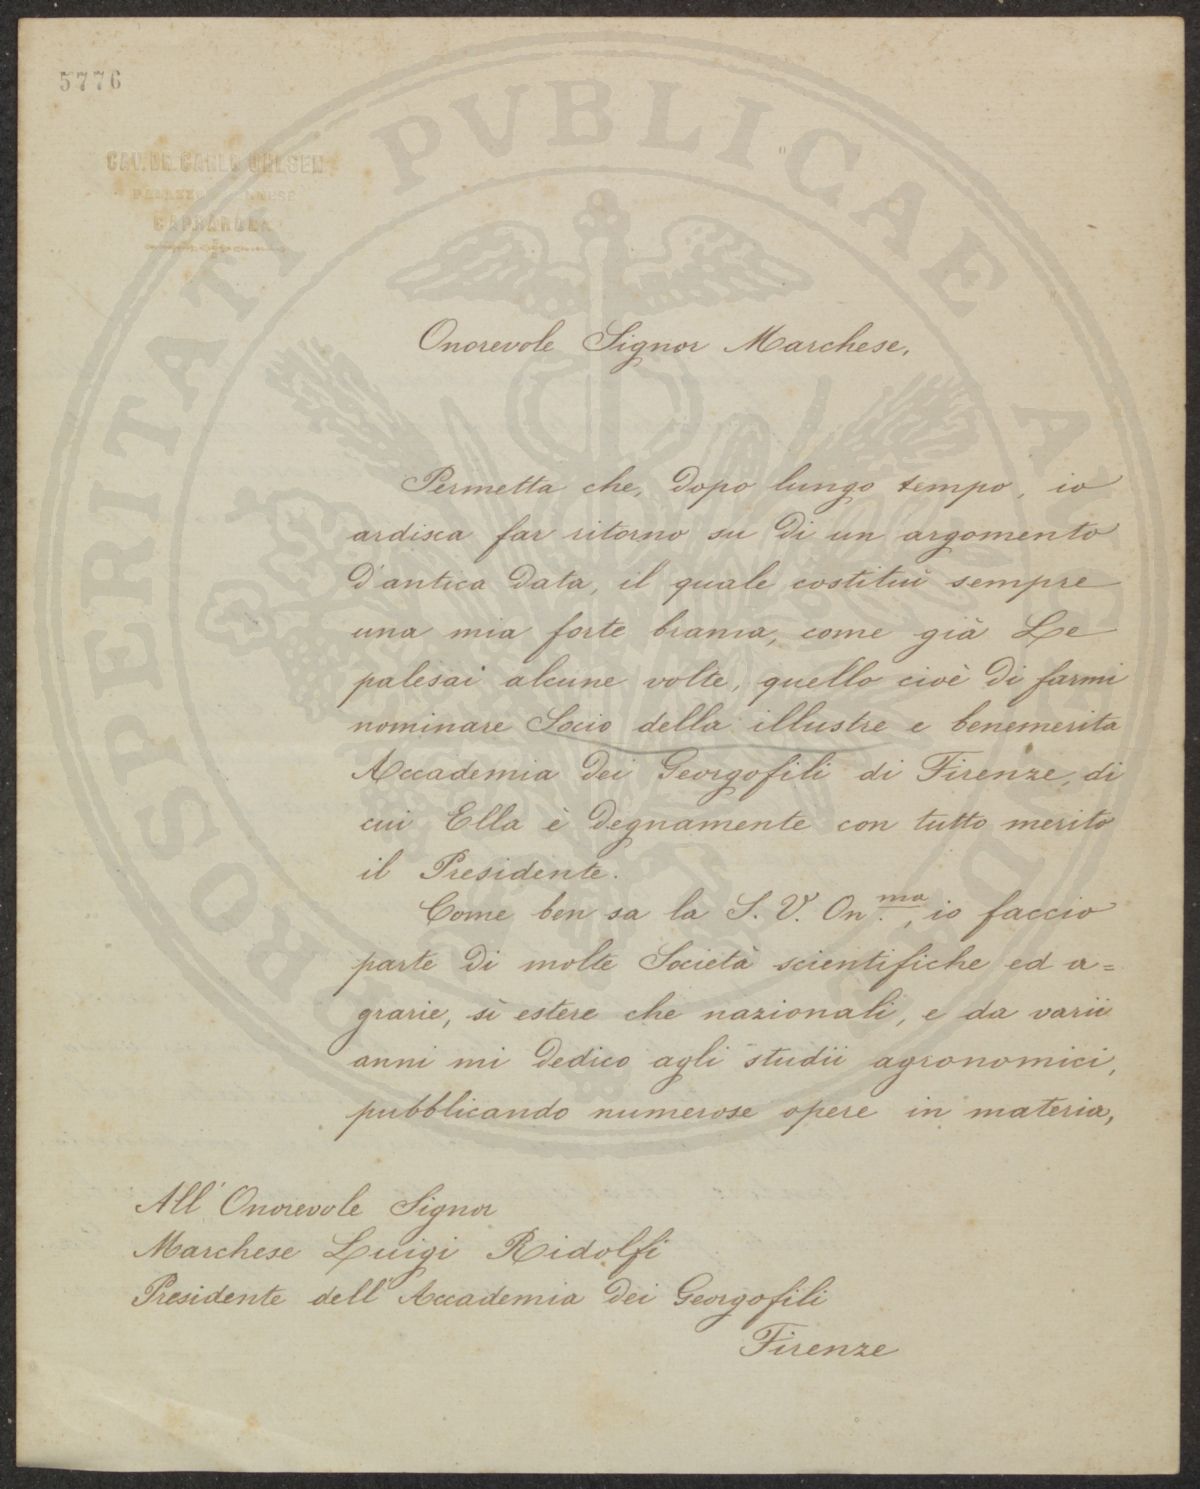 5776
CAV. DR. CARLO OHLSEN
PALAZZO FARNESE
CAPRAROLA
PROSPERITATI PVBLICAE AVGENDAE
Onorevole Signor Marchese,
Permetta che, dopo lungo tempo, io
ardisca far ritorno su di un argomento
d'antica data, il quale costituì sempre
una mia forte brama, come già Le
palesai alcune volte, quello cioè di farmi
nominare Socio della illustre e benemerita
Accademia dei Georgofili di Firenze, di
cui Ella è degnamente con tutto merito
il Presidente.
Come ben sa la S. V. On.ma, io faccio
parte di molte Società scientifiche ed a=
grarie, sì estere che nazionali, e da varii
anni mi dedico agli studii agronomici,
pubblicando numerose opere in materia,
All'Onorevole Signor
Marchese Luigi Ridolfi
Presidente dell'Accademia dei Georgofili
Firenze